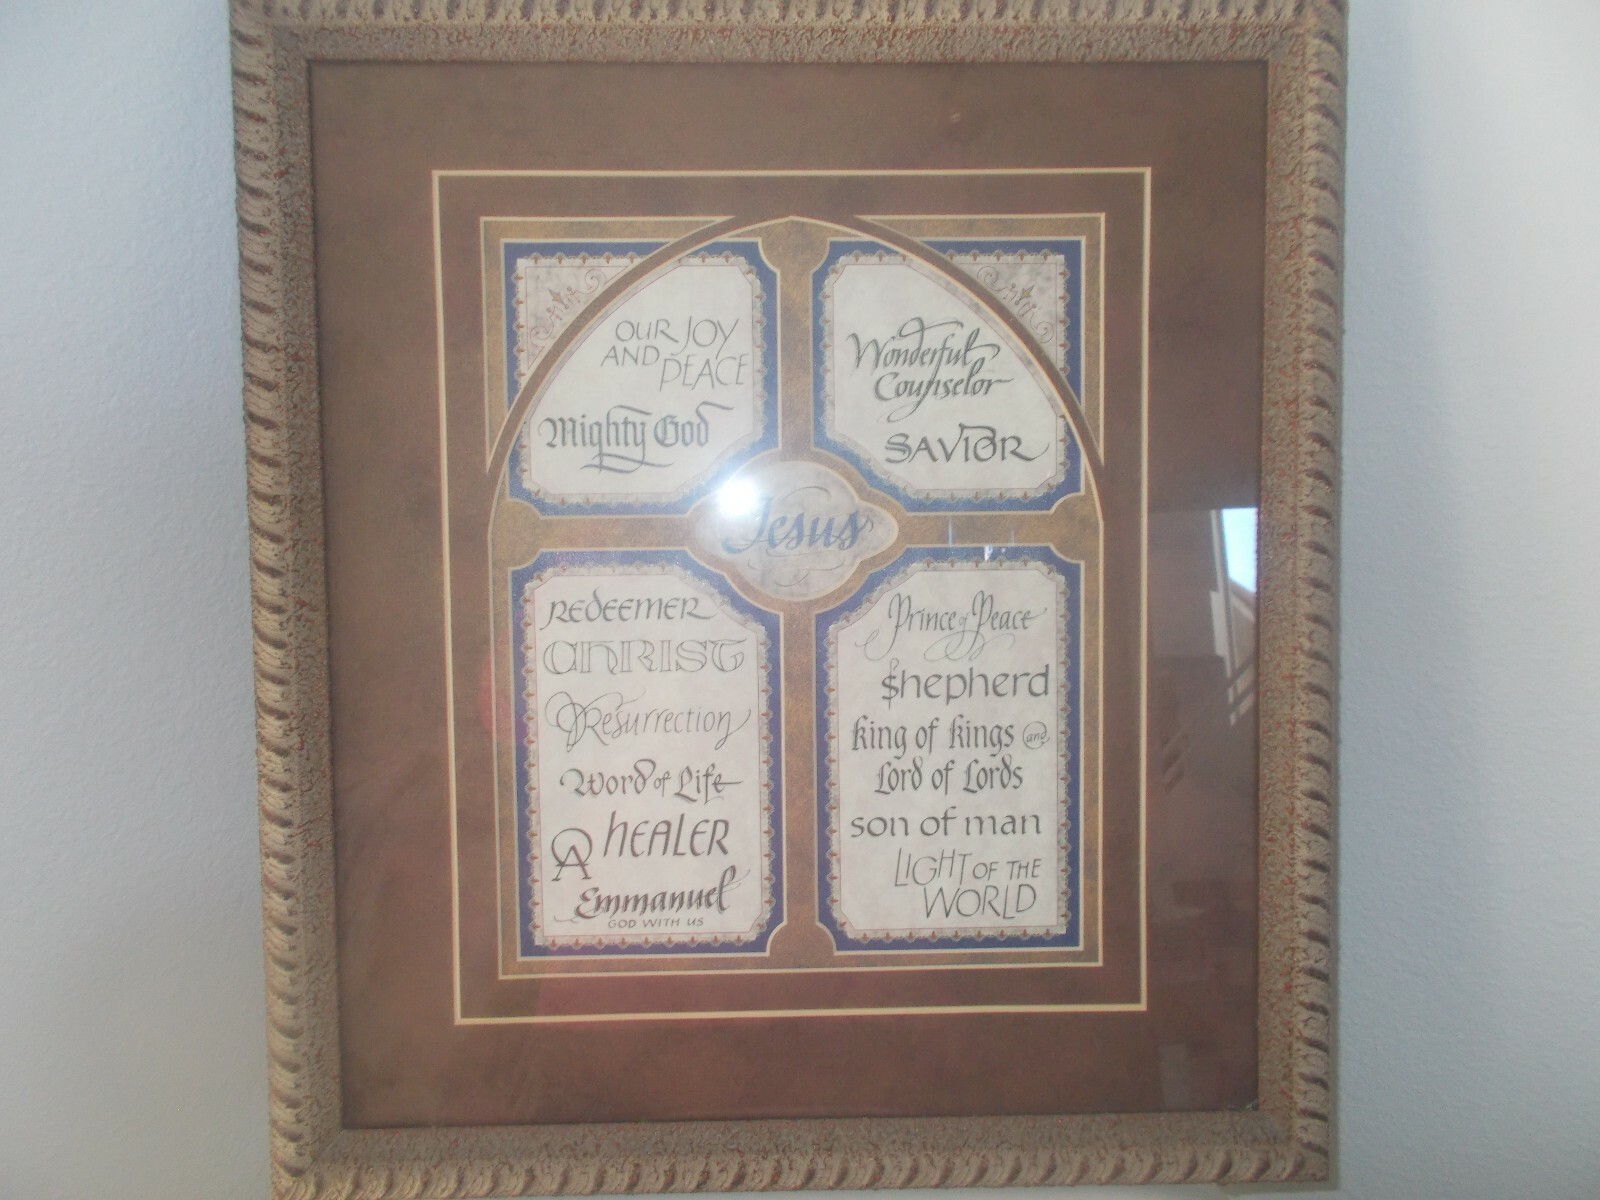 OUR JOY
AND PEACE
Mighty God
Wonderful
Counselor
SAVIOR
Jesus
REDEEMER
CHRIST
Resurrection
Word of Life
HEALER
Emmanuel
GOD WITH US
Prince of Peace
Shepherd
king of kings and
Lord of Lords
son of man
LIGHT OF THE
WORLD